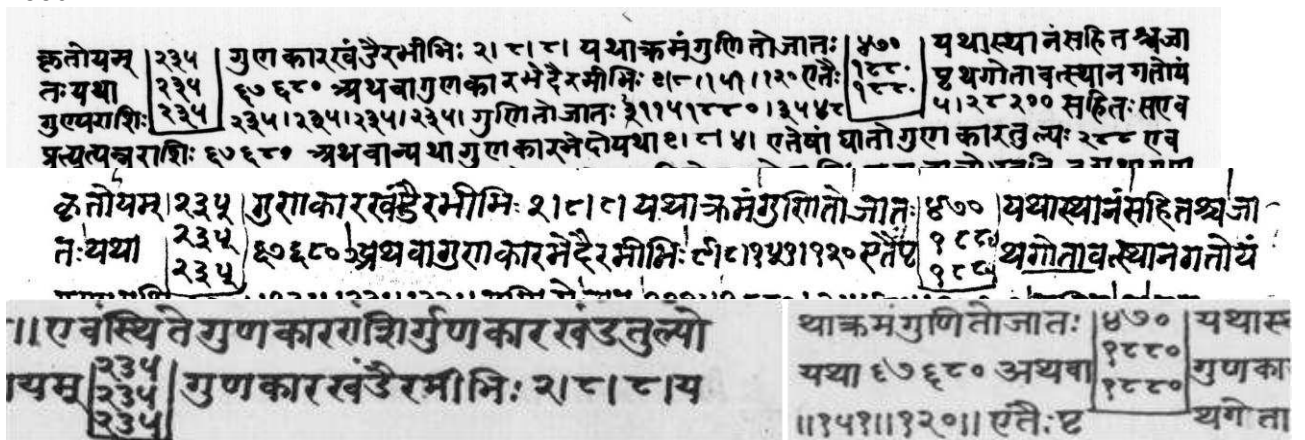 कृतोयम् २३५ गुणकारखंडैरमीभिः २।८।८। यथाक्रमंगुणितोजातः ४७० यथास्थानंसहितश्चजा
तःयथा २३५ ६७६८० अथवागुणकारभेदैरमीभिः ९।८।१५१।१२० एतैः १८८० पृथगोतावत्स्थानगतोयं
गुण्यराशिः २३५ २३५।२३५।२३५।२३५। गुणितोजातः १८८० सहितःसएव
प्रत्युत्पन्नराशिः ६७६८० अथवान्यथागुणकारभेदोयथा ९।८।४। एतेषांघातोगुणकारतुल्यः २८८ एव
कृतोयम् २३५ गुणकारखंडैरमीभिः २।८।८। यथाक्रमंगुणितोजातः ४७० यथास्थानंसहितश्चजा
तःयथा २३५ ६७६८० अथवागुणकारभेदैरमीभिः ९।८।१५१।१२० एतैःपृ १८८० थगोतावत्स्थानगतोयं
२३५ १८८०
॥एवंस्थितेगुणकारराशिर्गुणकारखंडतुल्यो
यम् २३५ गुणकारखंडैरमीभिः २।८।८।य
२३५
२३५
थाक्रमंगुणितोजातः ४७० यथास्
यथा ६७६८० अथवा १८८० गुणका
॥१५१॥१२०॥ एतैःपृ १८८० थगोता